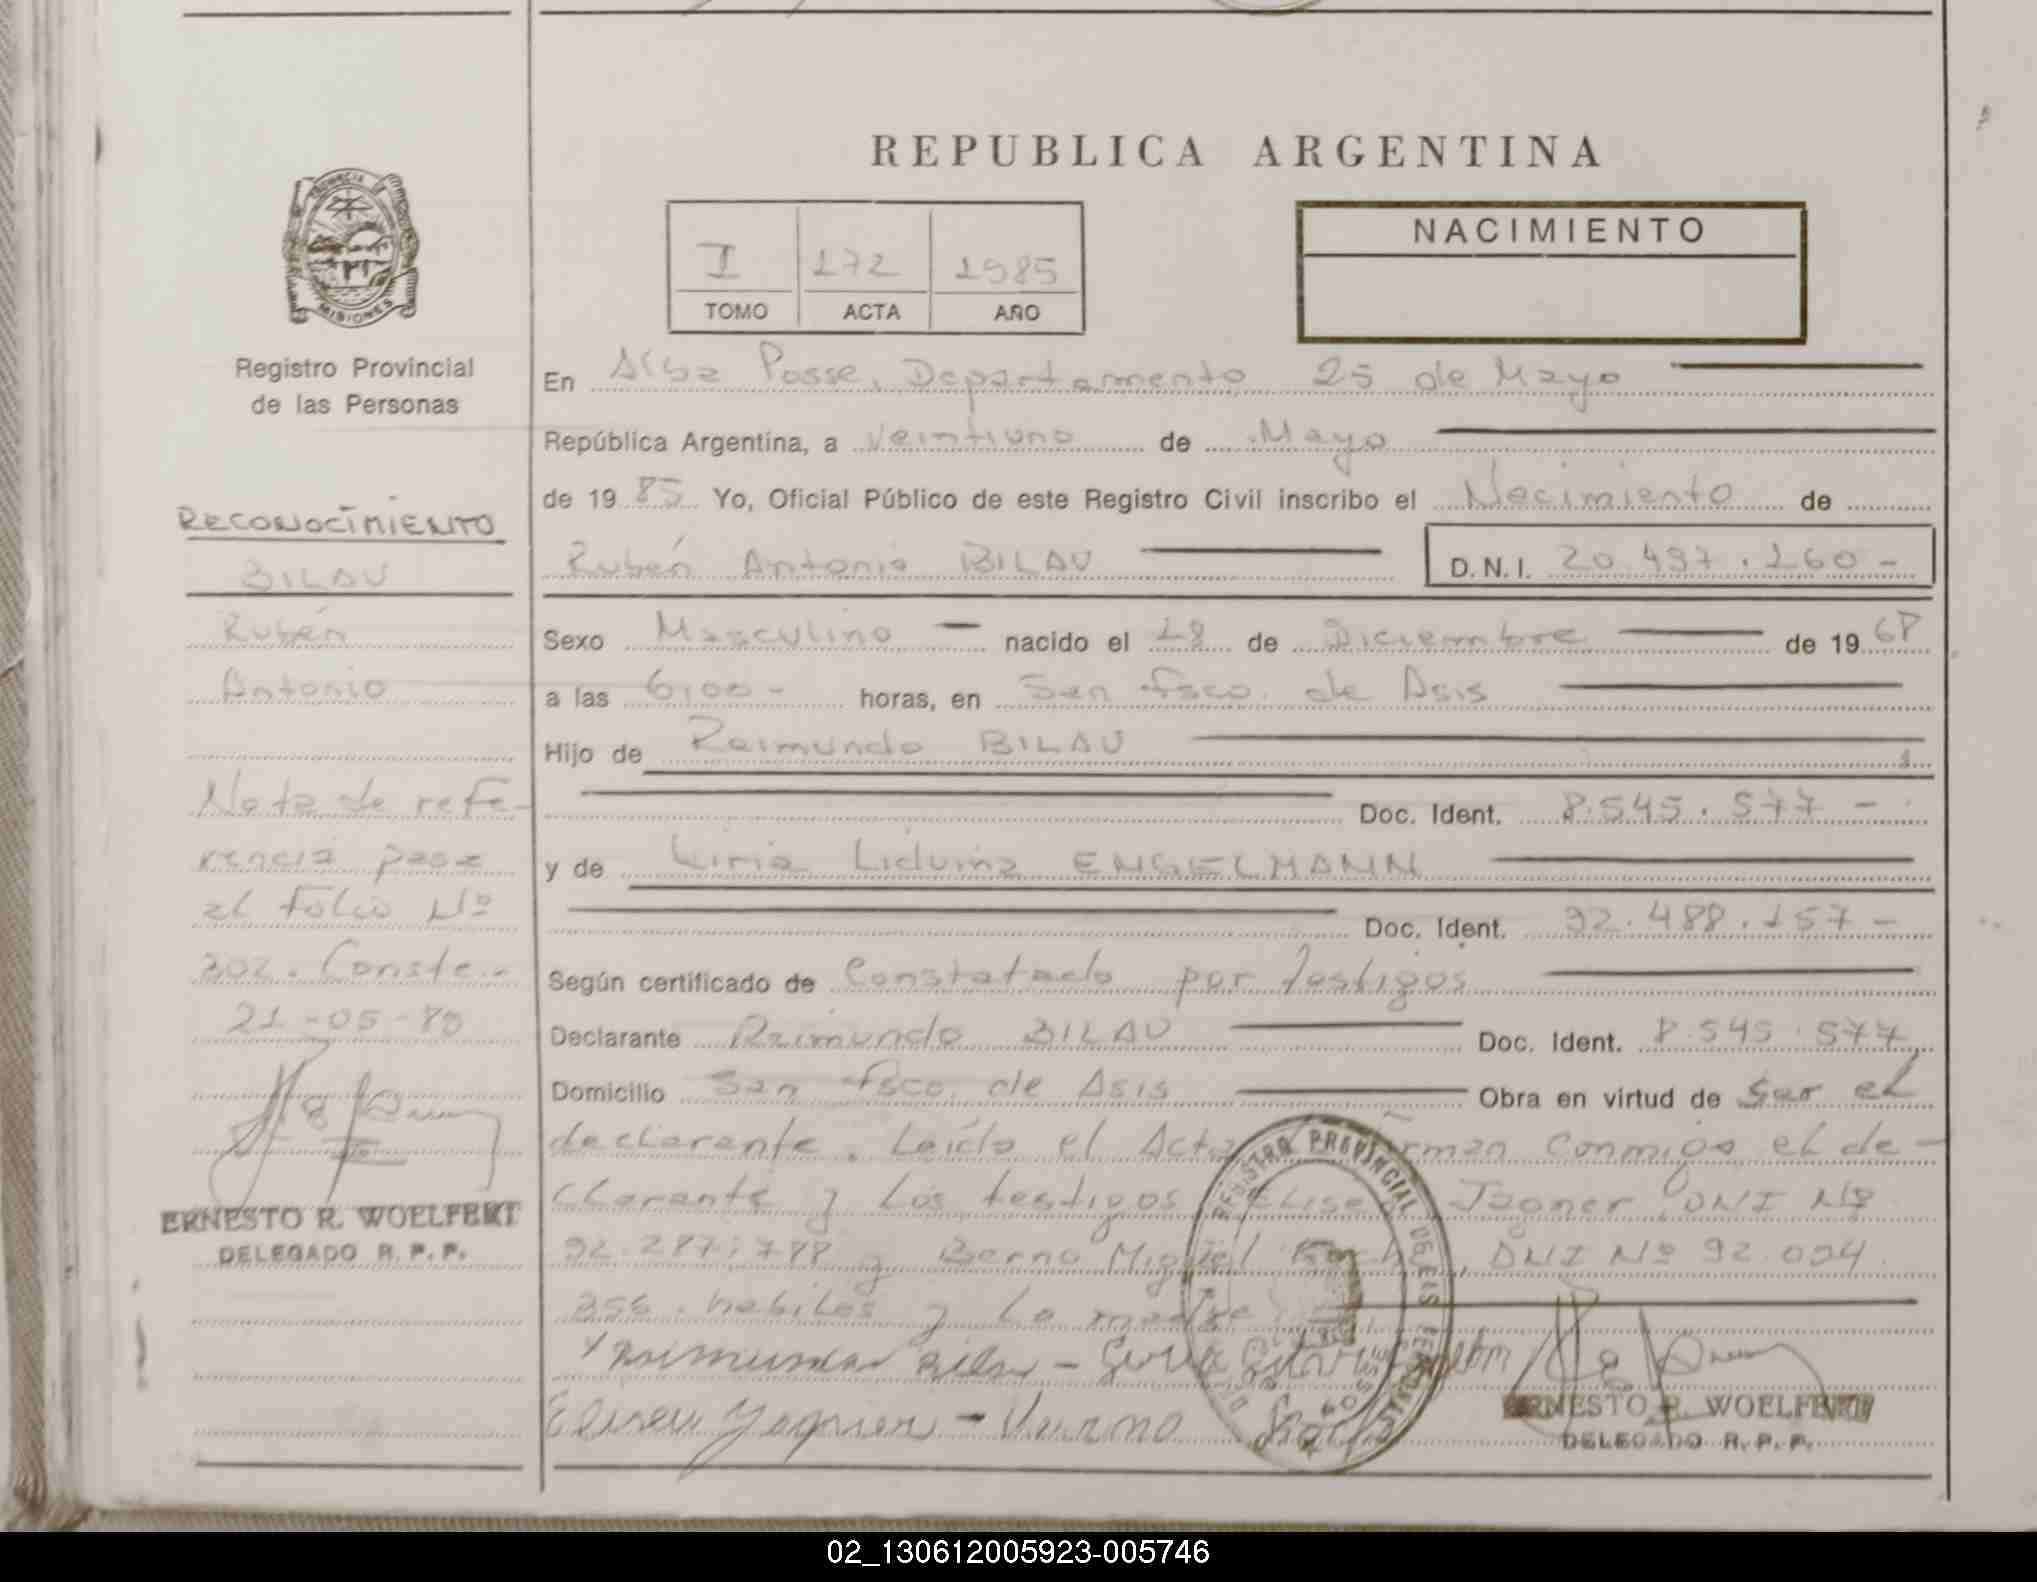 REPUBLICA ARGENTINA
PROVINCIA
MISIONES
Registro Provincial
de las Personas
I 172 1985
TOMO ACTA AÑO
NACIMIENTO
En Alba Posse, Departamento 25 de Mayo
República Argentina, a veintiuno de Mayo
de 1985 Yo, Oficial Público de este Registro Civil inscribo el Nacimiento de
Rubén Antonio BILAU D.N.I. 20.497.260-
Sexo Masculino nacido el 18 de Diciembre de 1968
a las 6,00- horas, en San Fsco. de Asis
Hijo de Raimundo BILAU
Doc. Ident. 8.545.577-
y de Liria Liduina ENGELMANN
Doc. Ident. 92.488.157-
Según certificado de Constatado por testigos
Declarante Raimundo BILAU Doc. Ident. 8.545.577
Domicilio San Fsco. de Asis Obra en virtud de ser el
declarante. Leída el Acta firman conmigo el de-
clarante y los testigos Eliseu Jagner DNI Nº
92.287.788 y Berno Miguel DNI Nº 92.094.
356. habiles y la madre
Raimundo Bilau -
Eliseu
ERNESTO R. WOELFERT
DELEGADO R. P. P.
REGISTRO PROVINCIAL DE LAS PERSONAS
RECONOCIMIENTO
BILAU
Rubén
Antonio
Nota de refe-
rencia pasa
al folio Nº
302. Conste.-
21-05-85
ERNESTO R. WOELFERT
DELEGADO R. P. P.
02_130612005923-005746